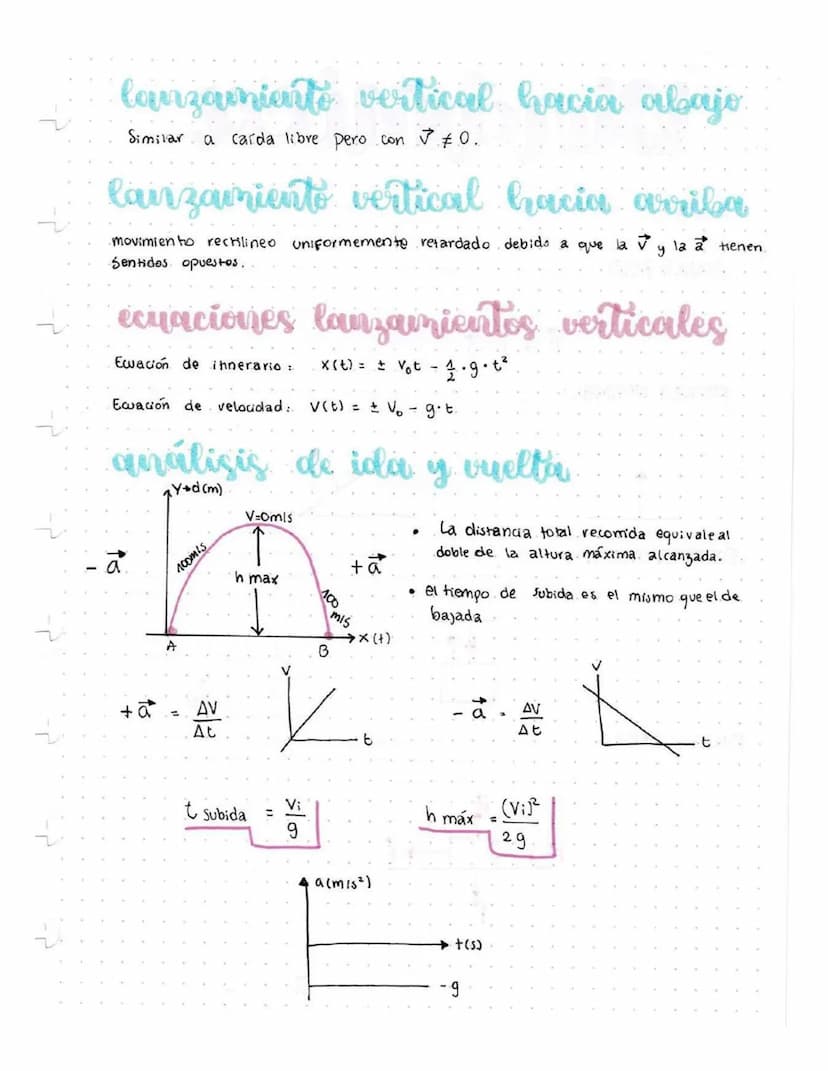 lanzamiento vertical hacia abajo
Similar a caída libre pero con v⃗ ≠ 0.
lanzamiento vertical hacia arriba
movimiento rectilineo uniformemente retardado debido a que la v⃗ y la a⃗ tienen
sentidos opuestos.
ecuaciones lanzamientos verticales
Ecuación de itinerario: x(t) = ± V₀t - 1/2 · g · t²
Ecuación de velocidad: V(t) = ± V₀ - g · t
análisis de ida y vuelta
y→d(m)
V=0m/s
100m/s
h max
100 m/s
- a⃗
+ a⃗
A
B
x (t)
• La distancia total recorrida equivale al
doble de la altura máxima alcanzada.
• el tiempo de subida es el mismo que el de
bajada
+ a⃗ = ΔV/Δt
V
t
- a⃗ = ΔV/Δt
V
t
t subida = Vi/g
h máx = (Vi)²/2g
a(m/s²)
t(s)
-g